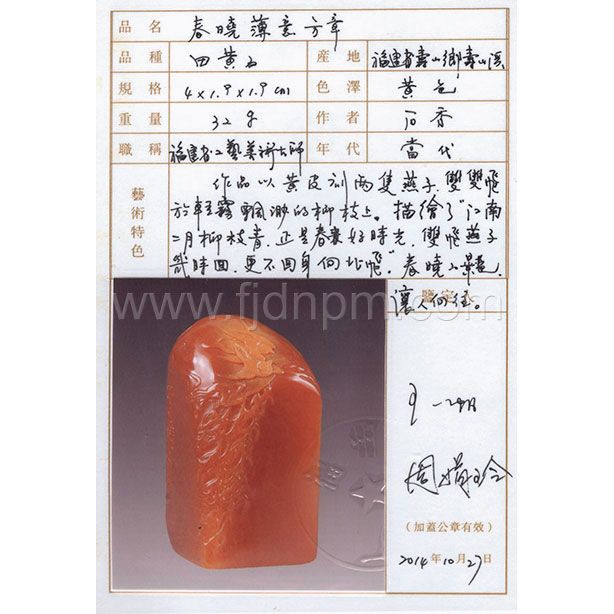 品名 春曉薄意方章
品種 田黃石 產地 福建省壽山鄉壽山溪
規格 4×1.9×1.9cm 色澤 黃色
重量 32g 作者 石秀
職稱 福建省工藝美術大師 年代 當代
藝術特色
作品以黃皮刻兩隻燕子,雙雙飛
於輕霧飄渺的柳枝上。描繪了"江南
二月柳枝青,正是春來好時光,雙飛燕子
幾時回,更不回身向北飛"。春曉之景色,
讓人向往。
鑒定人
王一帆
周
(加蓋公章有效)
2014年10月27日
www.fjdnpm.com